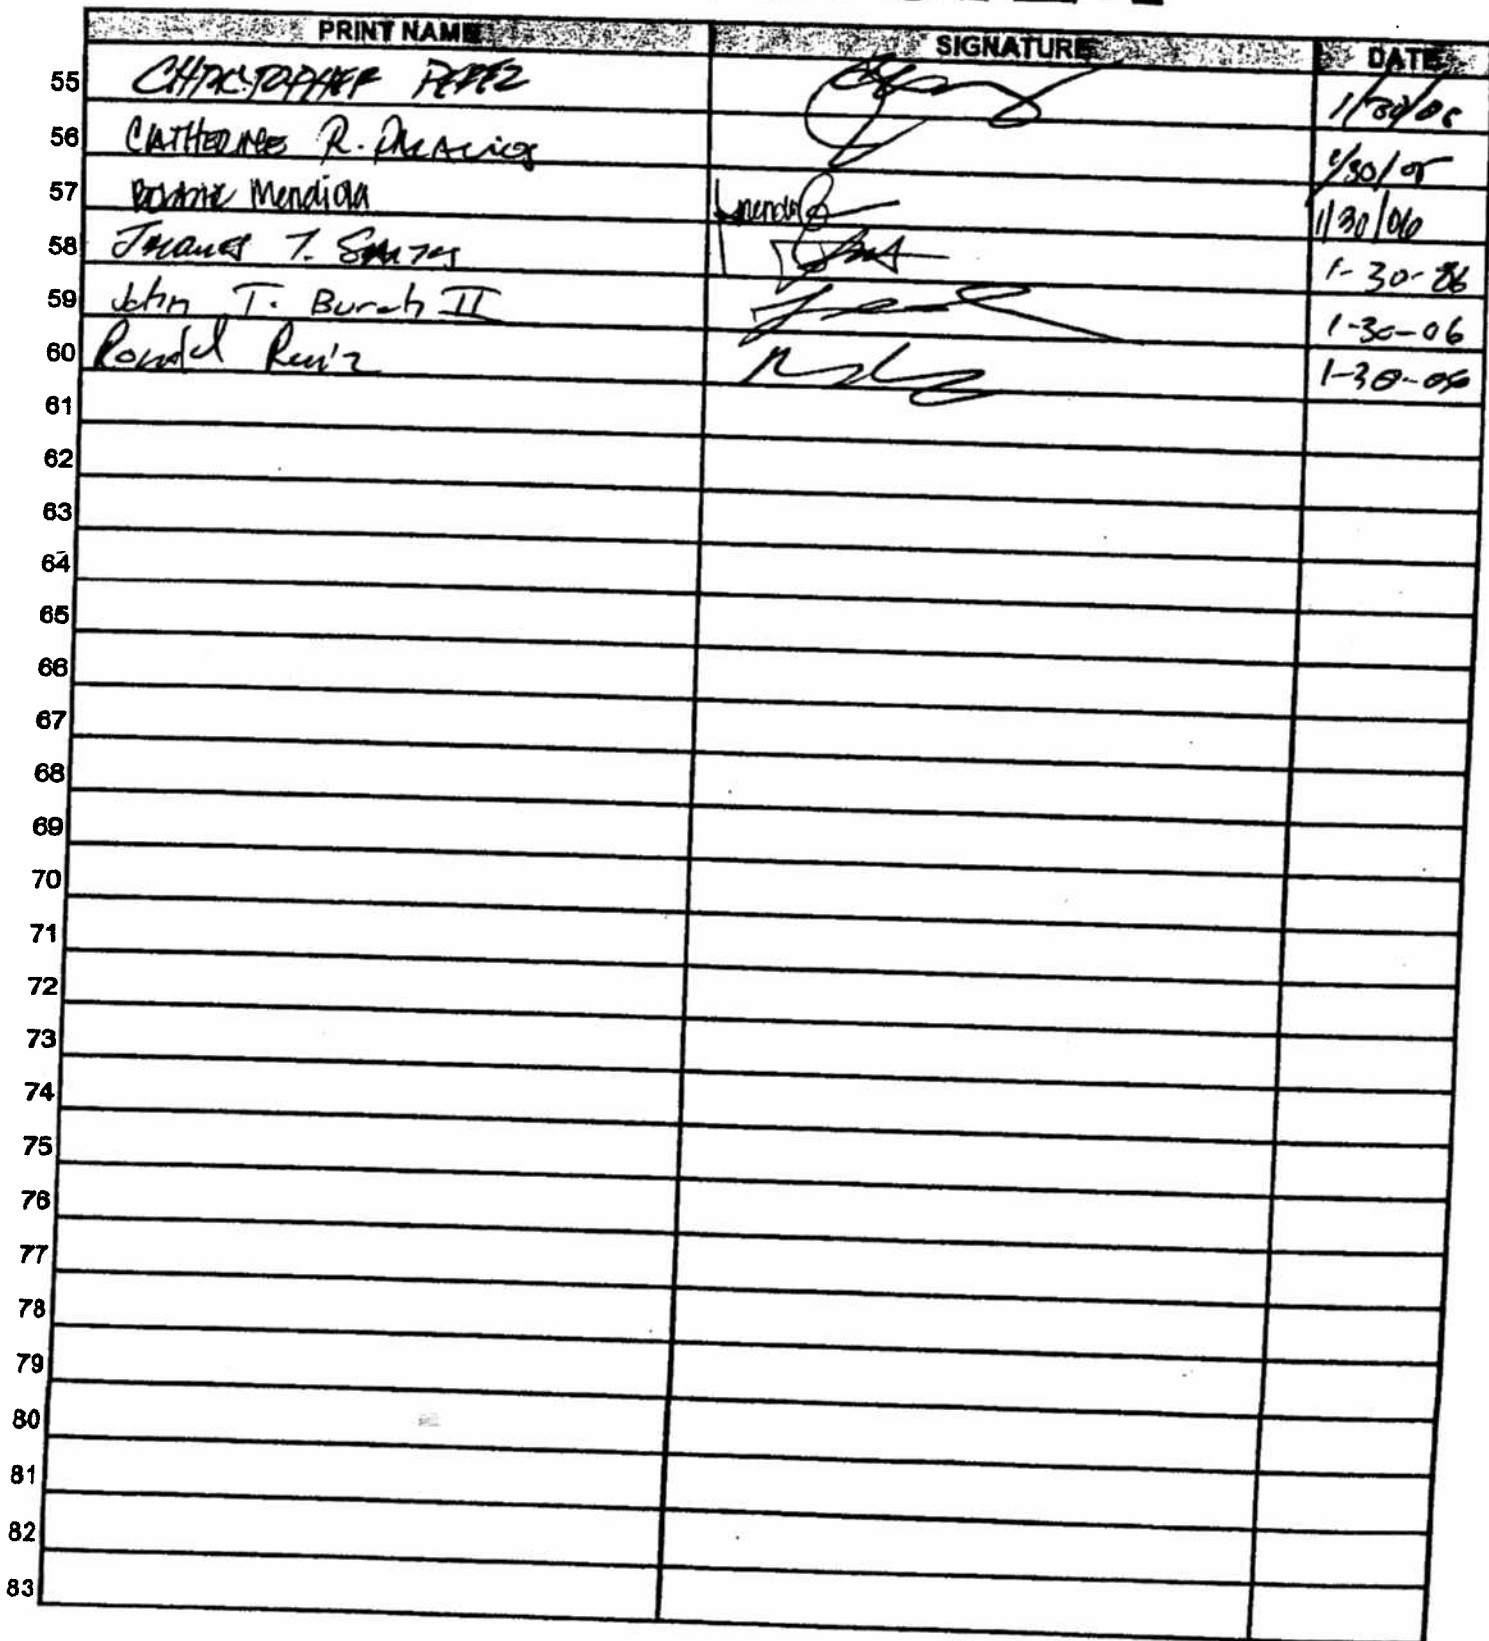 PRINT NAME SIGNATURE DATE
55 CHRISTOPHER PEREZ 1/30/06
56 CATHERINE R. PALACIOS 1/30/05
57 Mendiola 1/30/06
58 T. 1-30-06
59 John T. Burch II 1-30-06
60 Ronald Ruiz 1-30-06
61
62
63
64
65
66
67
68
69
70
71
72
73
74
75
76
77
78
79
80
81
82
83